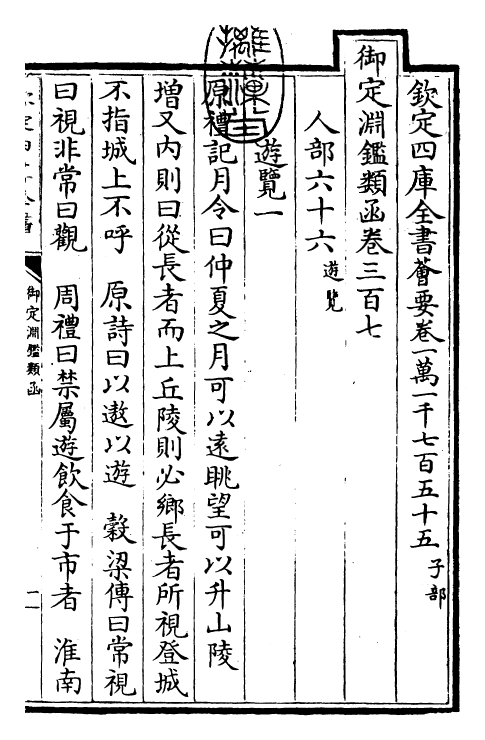 欽定四庫全書薈要卷一萬一千七百五十五 子部
御定淵鑑類函卷三百七
人部六十六 遊覽
遊覽一
原禮記月令曰仲夏之月可以遠眺望可以升山陵
增又內則曰從長者而上丘陵則必鄉長者所視登城
不指城上不呼 原詩曰以遨以遊 穀梁傳曰常視
曰視非常曰觀 周禮曰禁屬遊飲食于市者 淮南
御定淵鑑類函